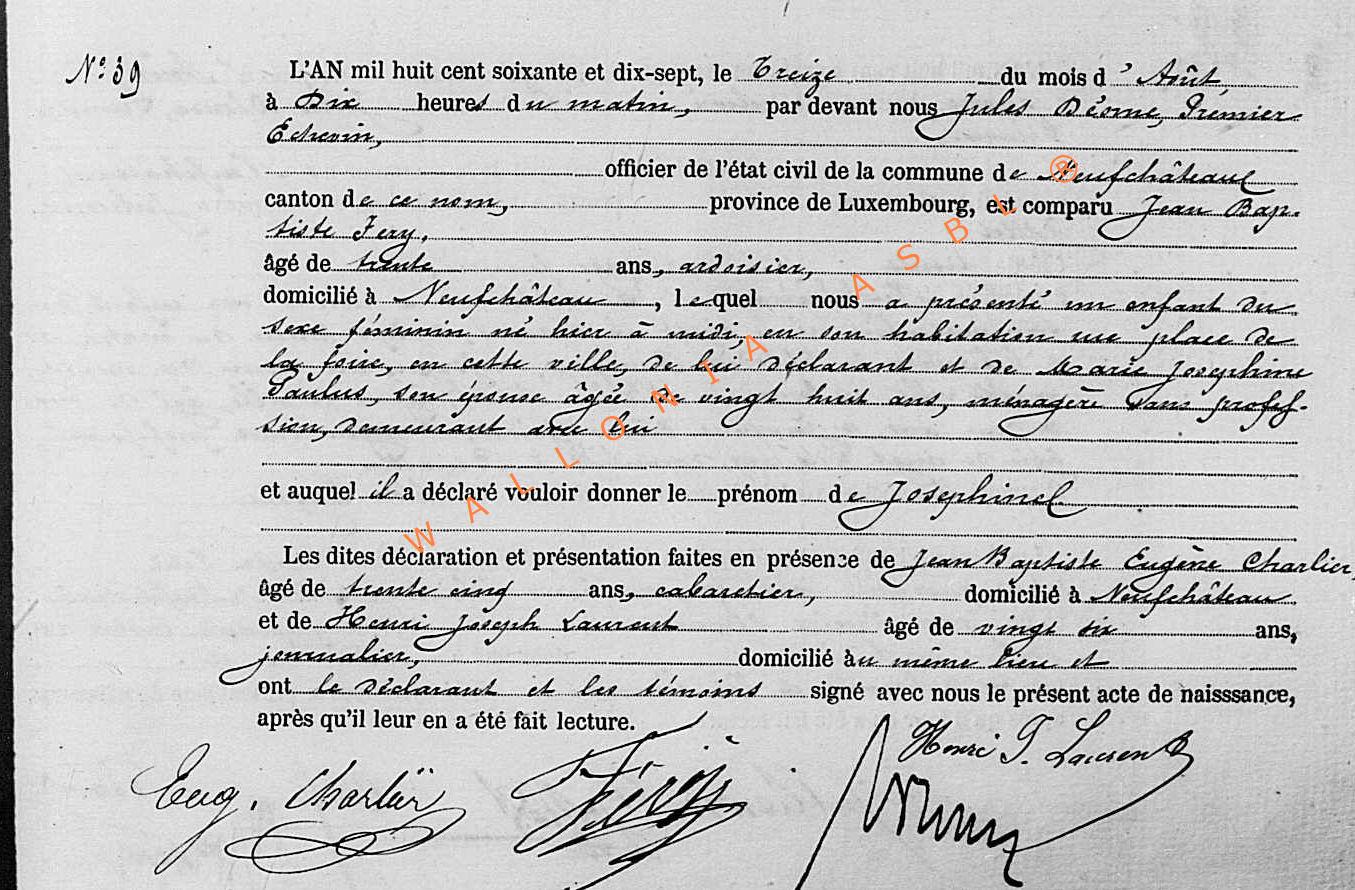 N° 39
L'AN mil huit cent soixante et dix-sept, le Treize du mois d'Août
à Dix heures du matin, par devant nous Jules Désome, Premier
Echevin,
officier de l'état civil de la commune de Neufchâteau
canton de ce nom, province de Luxembourg, est comparu Jean Bap-
tiste Fery,
âgé de trente ans, ardoisier,
domicilié à Neufchâteau, lequel nous a présenté un enfant du
sexe féminin né hier à midi, en son habitation une place de
la foire, en cette ville, de lui déclarant et de Marie Josephine
Paulus, son épouse âgée de vingt huit ans, ménagère sans profes-
sion, demeurant avec lui
et auquel il a déclaré vouloir donner le prénom de Josephine
Les dites déclaration et présentation faites en présence de Jean Baptiste Eugène Charlier,
âgé de trente cinq ans, cabaretier, domicilié à Neufchâteau
et de Henri Joseph Laurent âgé de vingt six ans,
journalier, domicilié au même lieu et
ont le déclarant et les témoins signé avec nous le présent acte de naisssance,
après qu'il leur en a été fait lecture.
Henri J. Laurent
Eug. Charlier Féry
WALLONIA ASBL ®